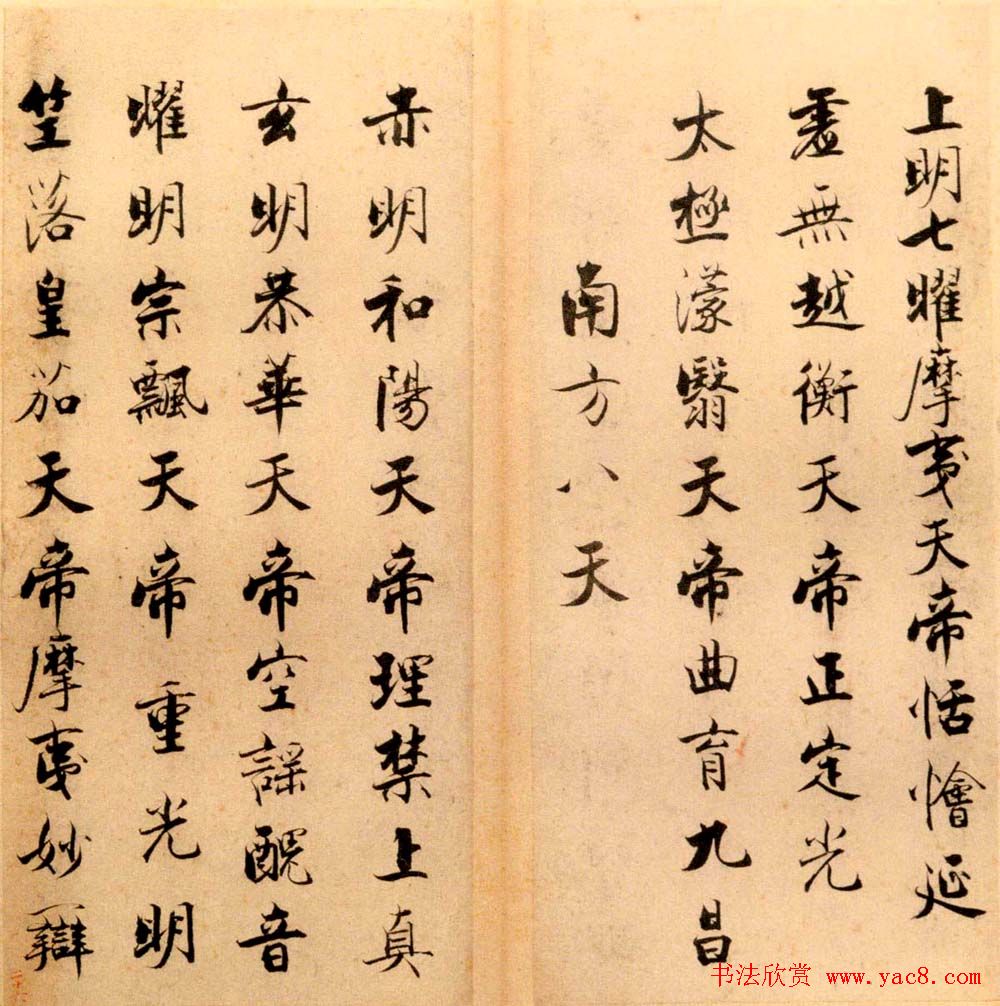 上明七曜摩夷天帝恬憺延
虛無越衡天帝正定光
太極濛翳天帝曲育九昌
南方八天
赤明和陽天帝理禁上真
玄明恭華天帝空謡醜音
耀明宗飄天帝重光明
竺落皇笳天帝摩夷妙辯
书法欣赏 www.yac8.com